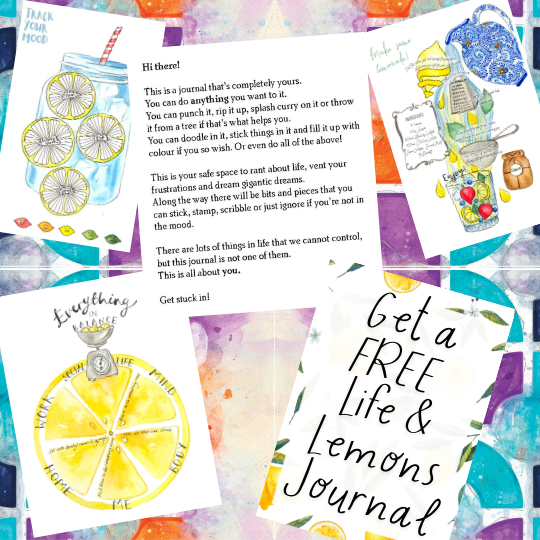 TRACK
YOUR
MOOD
Hi there!
This is a journal that's completely yours.
You can do anything you want to it.
You can punch it, rip it up, splash curry on it or throw
it from a tree if that's what helps you.
You can doodle in it, stick things in it and fill it up with
colour if you so wish. Or even do all of the above!
This is your safe space to rant about life, vent your
frustrations and dream gigantic dreams.
Along the way there will be bits and pieces that you
can stick, stamp, scribble or just ignore if you're not in
the mood.
There are lots of things in life that we cannot control,
but this journal is not one of them.
This is all about you.
Get stuck in!
Make some
lemonade!
INGREDIENTS
Enjoy
Everything
IN
BALANCE
SOCIAL LIFE
MIND
BODY
ME
HOME
WORK
Get a
FREE
Life &
Lemons
Journal